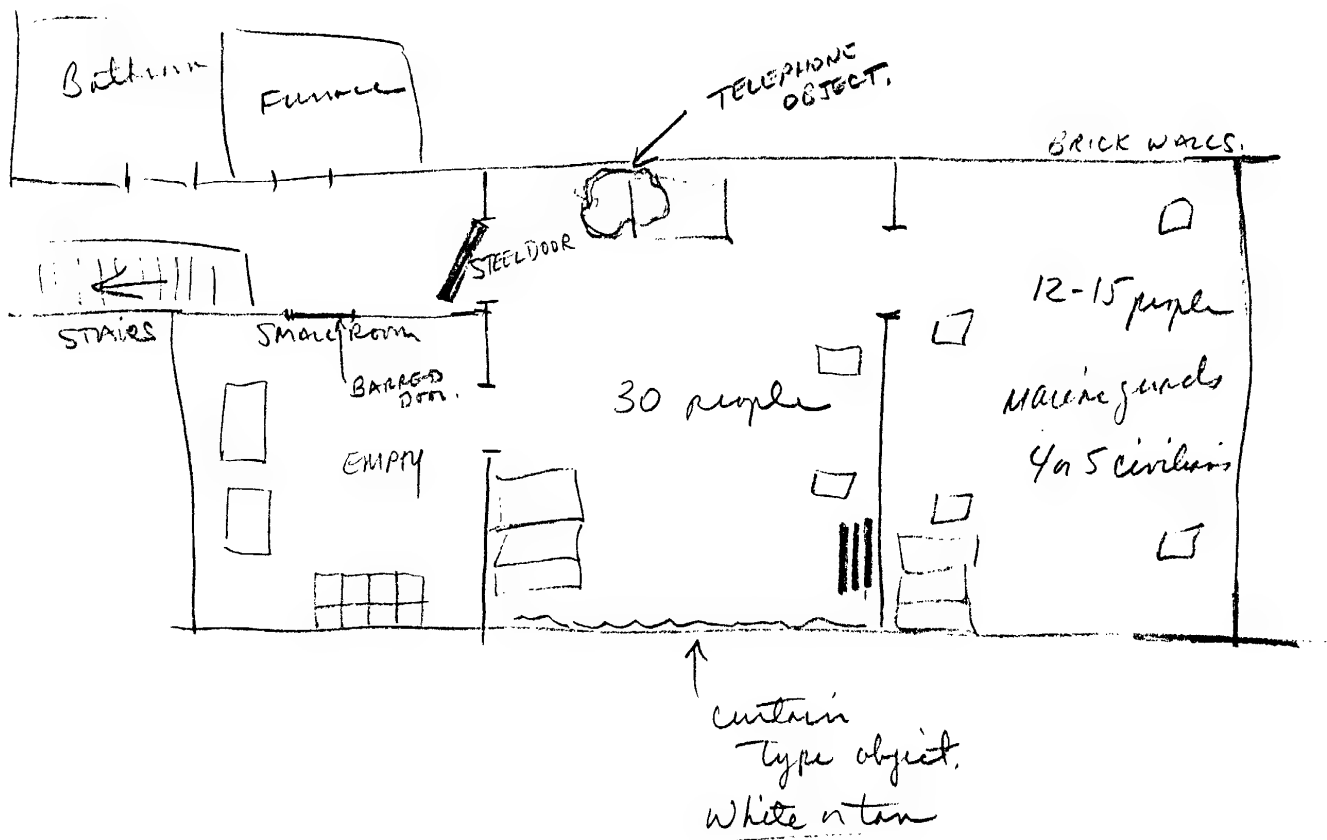 Bathroom
Furnace
TELEPHONE
OBJECT.
BRICK WALLS.
STEEL DOOR
STAIRS
SMALL ROOM
BARRED
DOOR.
EMPTY
30 people
12-15 people
Marine guards
4 or 5 civilians
curtain
Type object.
White or tan